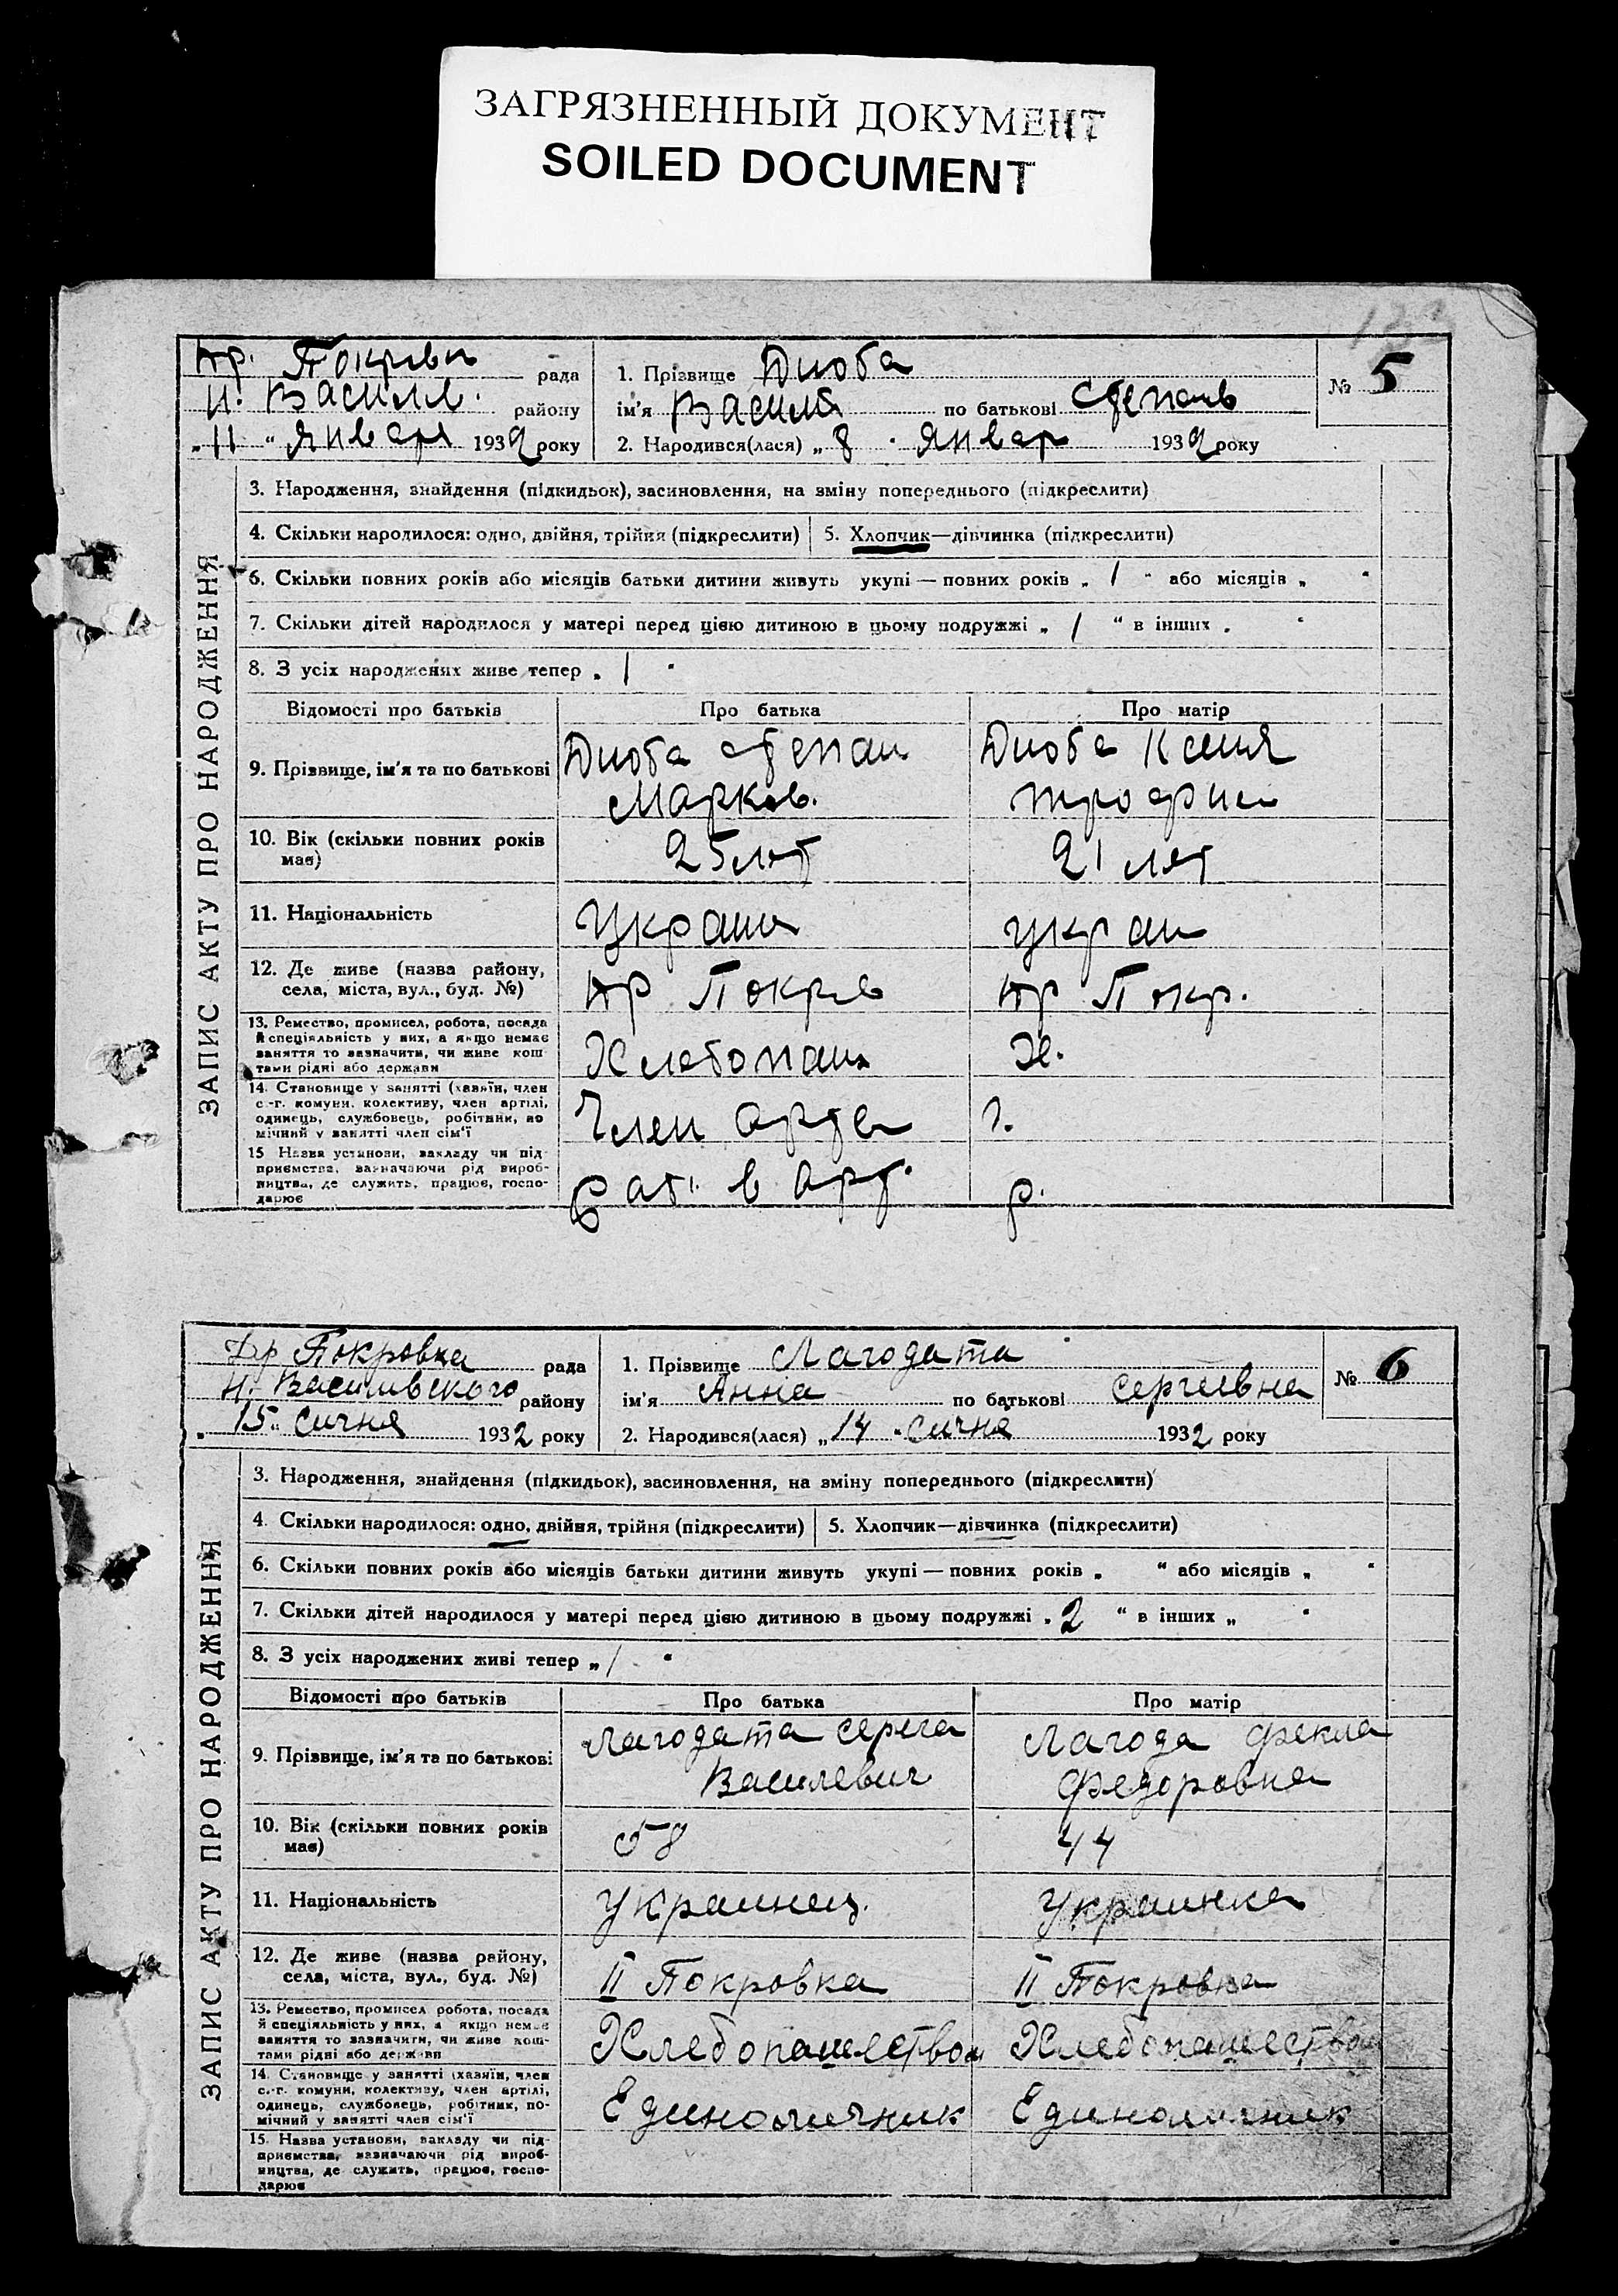 ЗАГРЯЗНЕННЫЙ ДОКУМЕНТ
SOILED DOCUMENT
рада
району
"11" Января 1932 року
1. Прізвище Дзюба
ім'я Василь по батькові Степанов
2. Народився(лася) "8" Январ 1932 року
№ 5
ЗАПИС АКТУ ПРО НАРОДЖЕННЯ
3. Народження, знайдення (підкидьок), засиновлення, на зміну попереднього (підкреслити)
4. Скільки народилося: одно, двійня, трійня (підкреслити)
5. Хлопчик—дівчинка (підкреслити)
6. Скільки повних років або місяців батьки дитини живуть укупі — повних років „ 1 “ або місяців „ “
7. Скільки дітей народилося у матері перед цією дитиною в цьому подружжі „ 1 “ в інших „ “
8. З усіх народжених живе тепер „ 1 “
Відомості про батьків
Про батька
Про матір
9. Прізвище, ім'я та по батькові
Дзюба Степан
Марков.
Дзюба
Трофим
10. Вік (скільки повних років
має)
25 лет
21 лет
11. Національність
Украин
украин
12. Де живе (назва району,
села, міста, вул., буд. №)
Покров
Покр.
13. Ремество, промисел, робота, посада
й спеціяльність у них, а якщо немає
заняття то зазначити, чи живе кош
тами рідні або держави
Хлебопаш
Х.
14. Становище у занятті (хазяїн, член
с.-г. комуни, колективу, член артілі,
одинець, службовець, робітник, по
мічний у занятті член сім'ї
Член арте
15 Назва установи, закладу чи під-
приємства, зазначаючи рід вироб-
ництва, де служить, працює, госпо-
дарює
Раб. в арт.
р.
Покровка рада
Н. Василивского району
"15" сичня 1932 року
1. Прізвище Лагодата
ім'я Анна по батькові Сергеевна
2. Народився(лася) „14“ сичня 1932 року
№ 6
ЗАПИС АКТУ ПРО НАРОДЖЕННЯ
3. Народження, знайдення (підкидьок), засиновлення, на зміну попереднього (підкреслити)
4. Скільки народилося: одно, двійня, трійня (підкреслити)
5. Хлопчик—дівчинка (підкреслити)
6. Скільки повних років або місяців батьки дитини живуть укупі — повних років „ “ або місяців „ “
7. Скільки дітей народилося у матері перед цією дитиною в цьому подружжі „ 2 “ в інших „ “
8. З усіх народжених живі тепер „ 1 “
Відомості про батьків
Про батька
Про матір
9. Прізвище, ім'я та по батькові
Лагодата Серега
Василевич
Лагода Фекла
Федоровна
10. Вік (скільки повних років
має)
58
44
11. Національність
Украинец.
Украинка
12. Де живе (назва району,
села, міста, вул., буд. №)
II Покровка
II Покровка
13. Ремество, промисел робота, посада
й спеціяльність у них, а якщо немає
заняття то зазначити, чи живе кош-
тами рідні або держави
Хлебопашеством
Хлебопашество
14. Становище у занятті (хазяїн, член
с.-г. комуни, колективу, член артілі,
одинець, службовець, робітник, по-
мічний у занятті член сім'ї
Единоличник
Единоличник
15. Назва установи, закладу чи під
приємства, зазначаючи рід вироб-
ництва, де служить, працює, госпо-
дарює